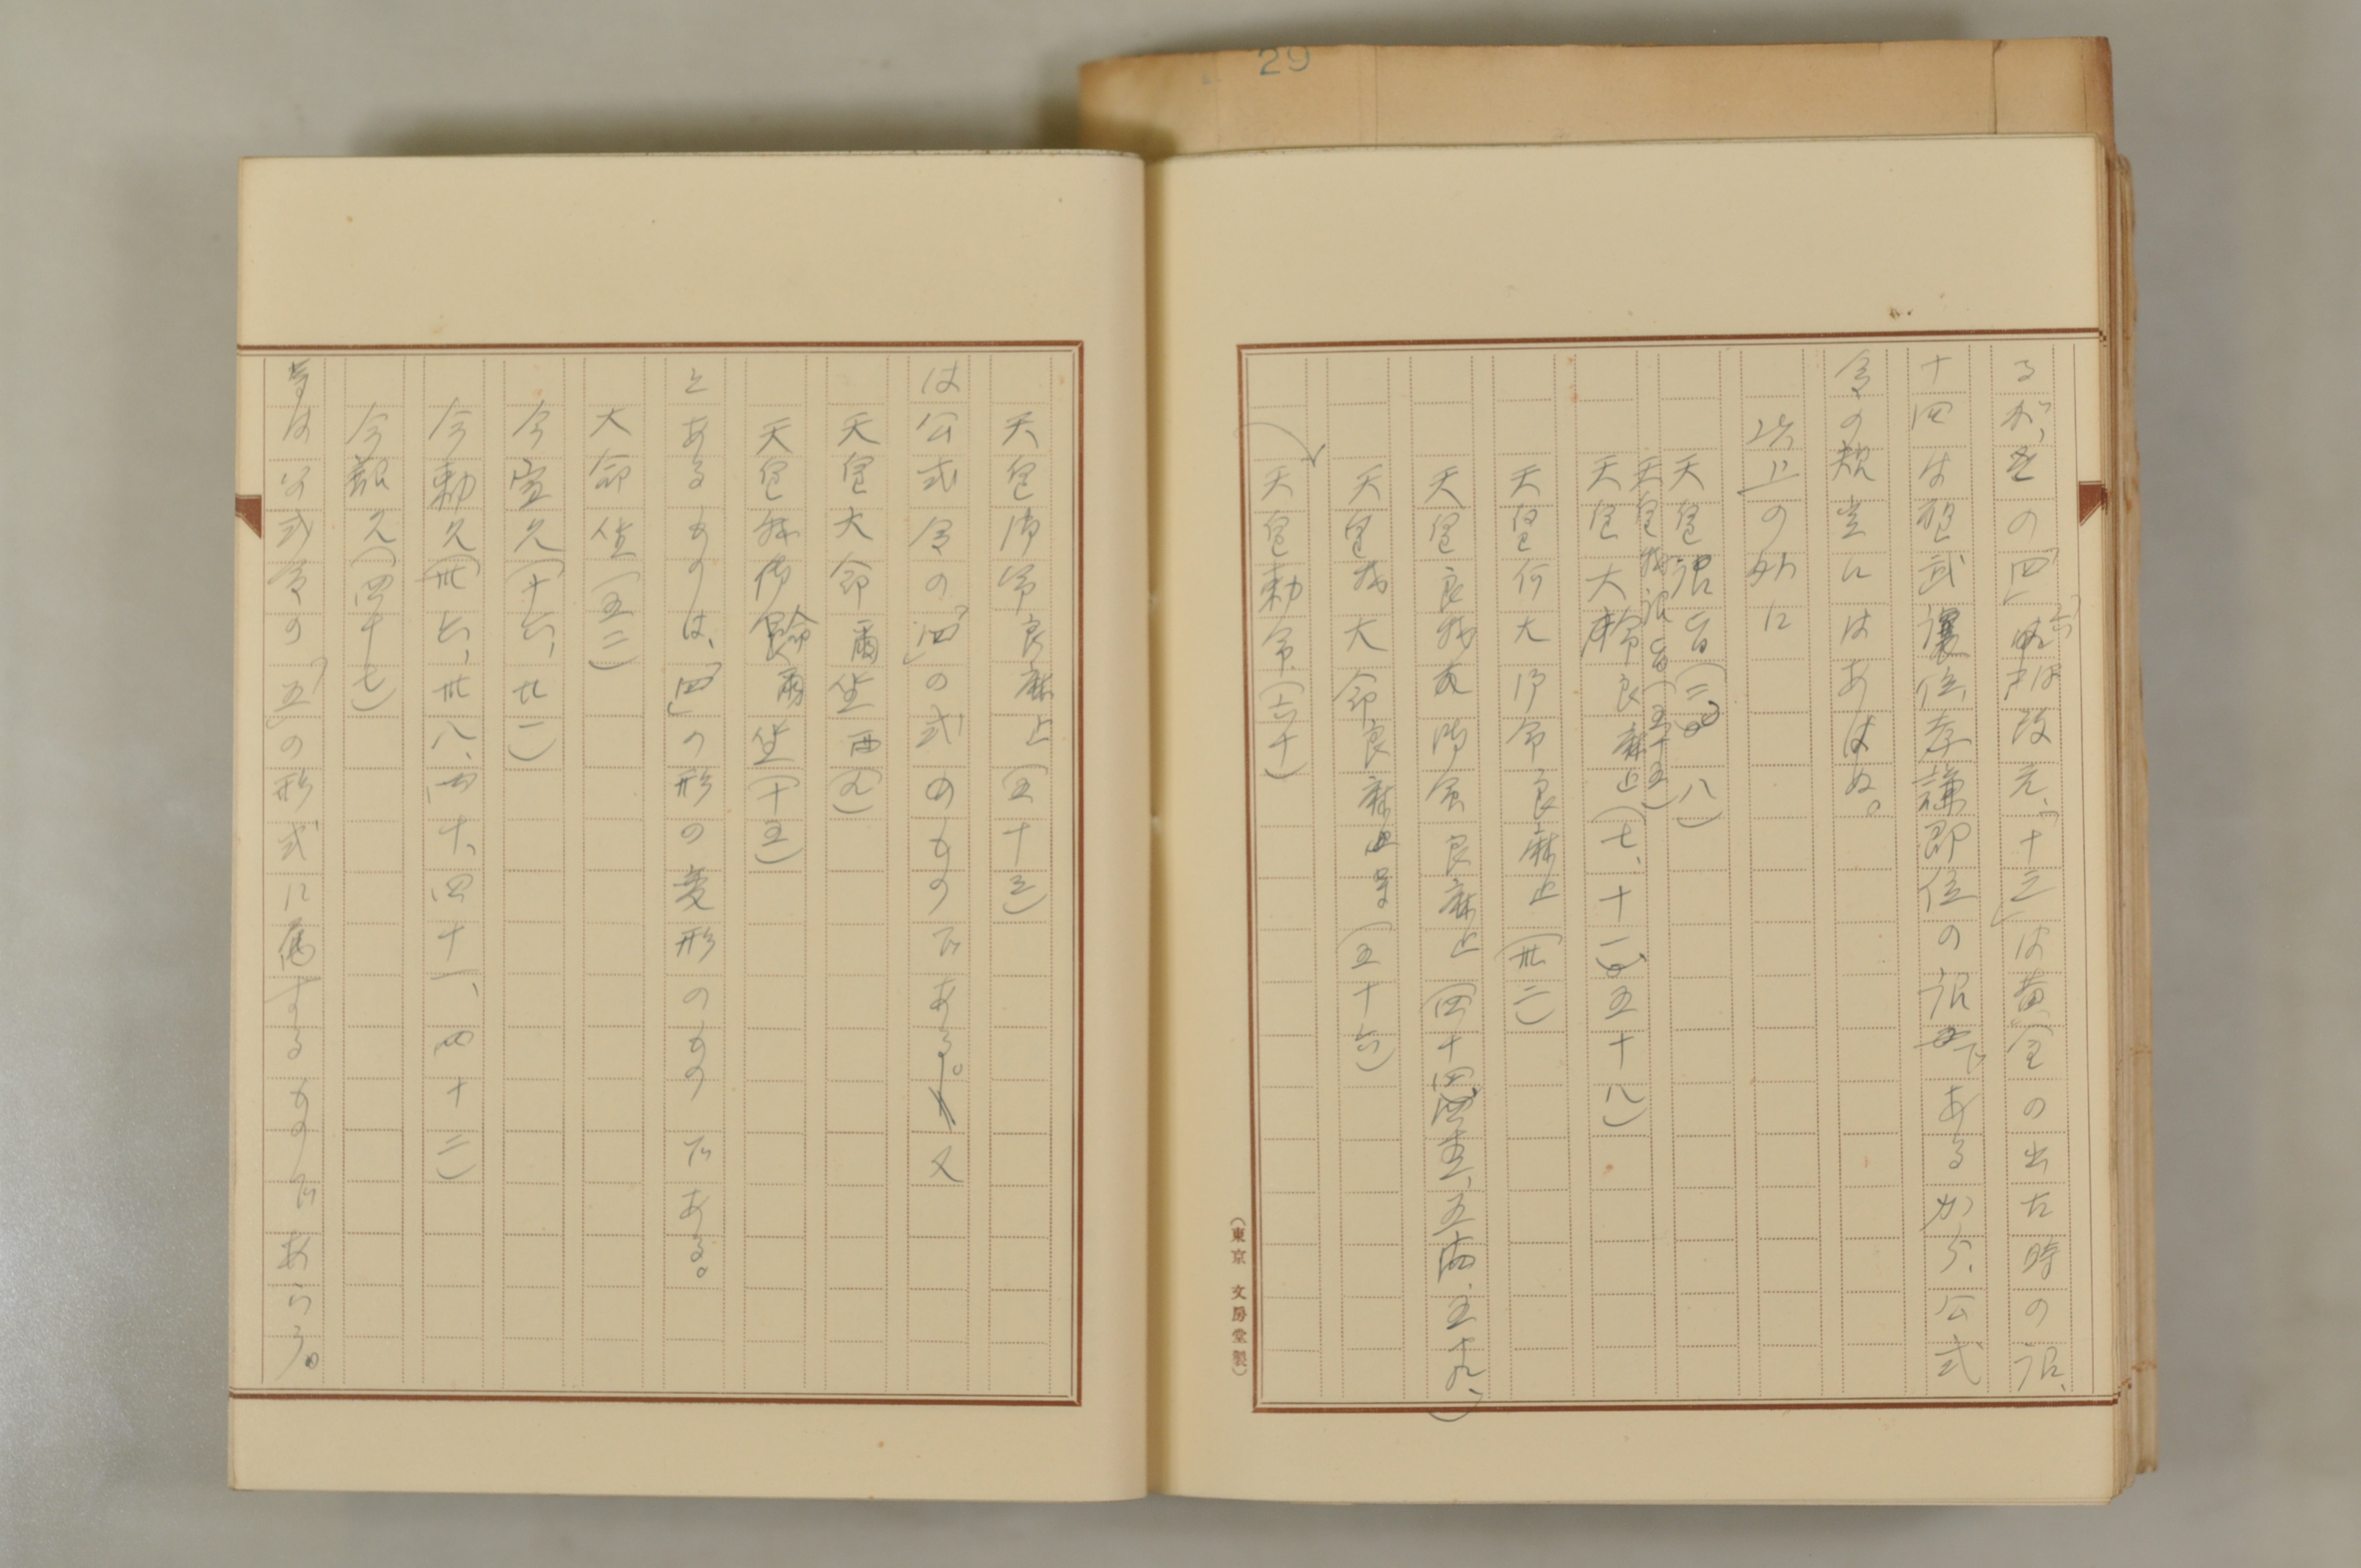 29
るが、その「四」「六」は改元、「十三」は黄金の出た時の詔、
十四は聖武讓位孝謙即位の詔である から、公式
令の規定にはあはぬ。
此上の外に
天皇詔旨(二、八)
天皇我詔旨(五十五)
天皇大命良麻止(七、十一、五十八)
天皇何大御命良麻止(卅二)
天皇良我御命良麻止(四十四、五、五十九、)
天皇我大命良麻止(五十六)
天皇勅命(六十)
(東京 文房堂製)
天皇御命良麻止(五十三)
は公式令の「四」の式のものである。又
天皇大命爾坐西(九)
天皇我御命爾坐(十五)
とあるものは、「四」の形の変形のものである。
大命坐(五二)
今宣久(十六、廿一)
今勅久(卅六、卅八、四十、四十一、四十二)
今詔久(四十七)
等は公式令の「五」の形式に属するものであらう。